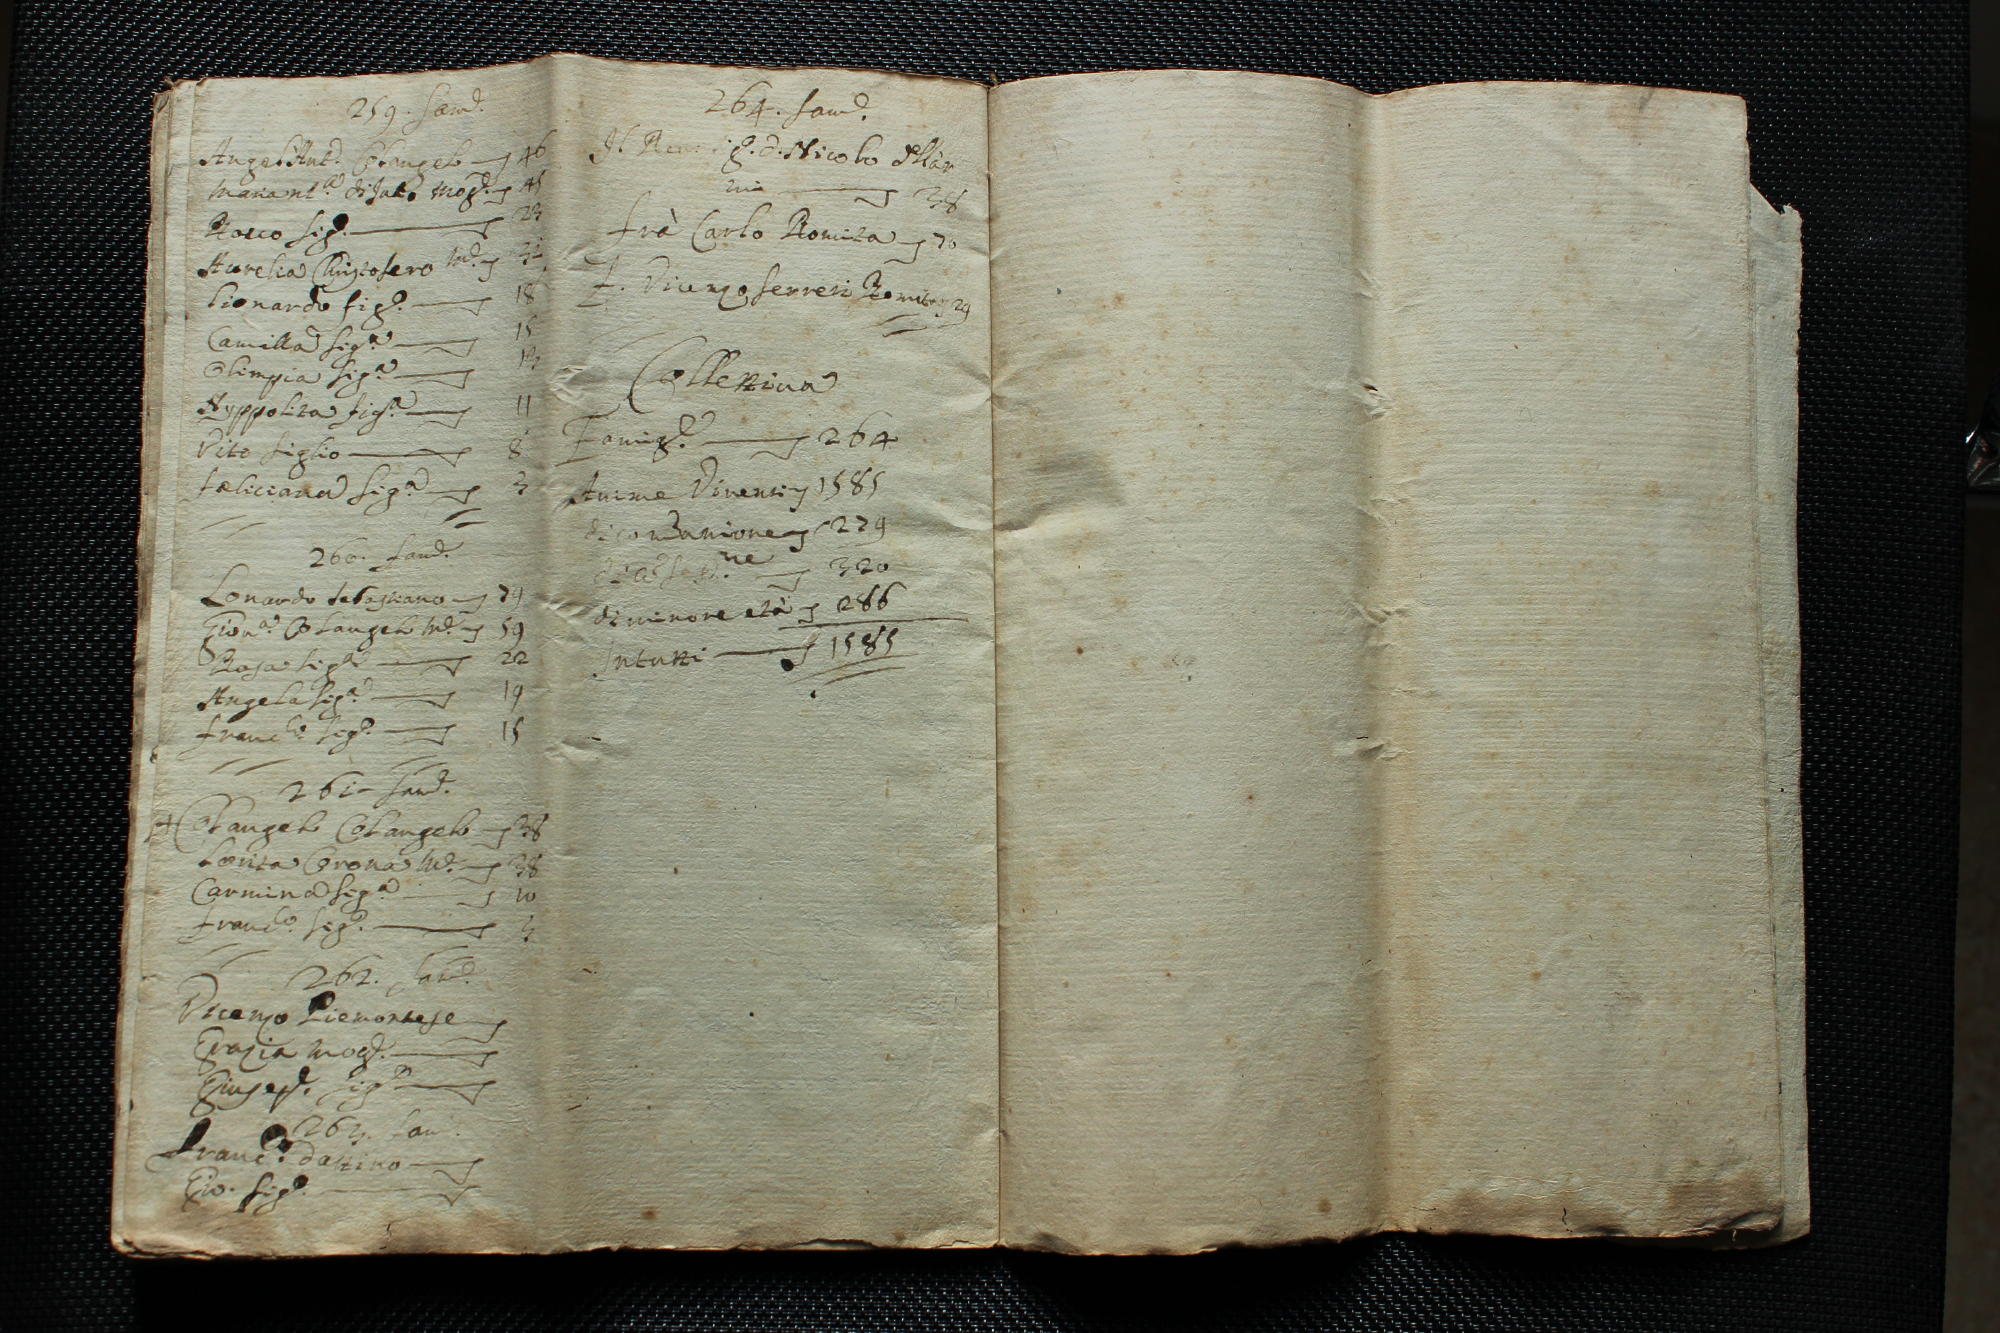 259. fam.
Angel'Ant.o Colangelo 46
Mariant.a di Jaco Mog. 45
Rocco fig.o 23
Aurelia Christofero M.
Lionardo fig.o 18
Camilla fig.a 15
Olimpia fig.a 13
Hyppolita fig.a 11
Vito figlio 8
Feliciana fig.a 3
260. fam.
Lonardo Sebastiano 74
Gion.a Colangelo M. 59
Rosa fig.a 22
Angela fig.a 19
Franc.o fig.o 15
261 fam.
Colangelo Colangelo 38
Corona M. 38
Carmina fig.a 10
Franc.o fig.o 3
262. fam.
Vicenzo Piemontese
Grazia Mog.
Giusep. fig.o
263. fam.
Franc.o Dattino
Gio. fig.o
264. fam.
Il Rev. Sig. D. Nicolo Mar
ni 38
frà Carlo Romita 70
f. Vicenzo ferreri Romita 29
Collettiva
Famig. 264
Anime Diventi 1585
di comunione 279
320
di minore età 286
In tutti 1585